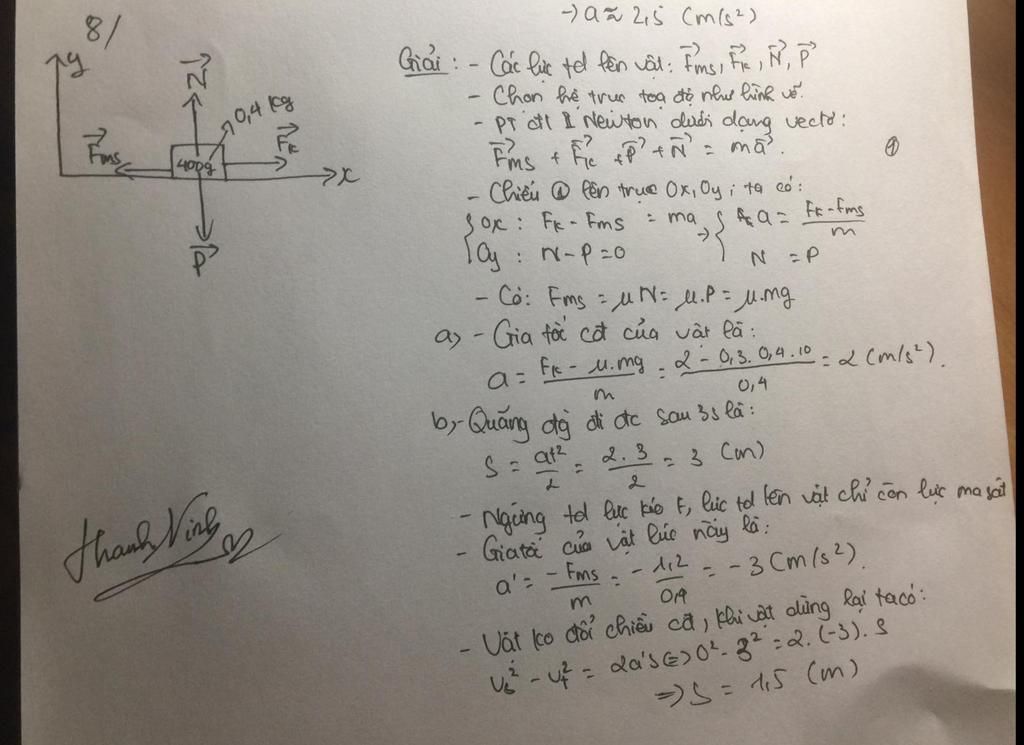 → a ≈ 2,5 (m/s²)
8/
y
N
0,4 kg
Fms
400g
Fk
x
P
Giải: - Các lực td lên vật: Fms, Fk, N, P
- Chọn hệ trục toạ độ như hình vẽ.
- PT đl II Newton dưới dạng vectơ:
Fms + Fk + P + N = ma. ①
- Chiếu ① lên trục Ox, Oy, ta có:
{ Ox: Fk - Fms = ma → { a = (Fk - Fms)/m
{ Oy: N - P = 0 { N = P
- Có: Fms = μN = μ.P = μ.mg
a, - Gia tốc cđ của vật là:
a = (Fk - μ.mg)/m = (2 - 0,3. 0,4. 10)/0,4 = 2 (m/s²).
b, - Quãng đg đi đc sau 3s là:
S = at²/2 = 2.3/2 = 3 (m)
- Ngừng td lực kéo F, lực td lên vật chỉ còn lực ma sát
- Gia tốc của vật lúc này là:
a' = -Fms/m = -1,2/0,4 = -3 (m/s²).
- Vật ko đổi chiều cđ, khi vật dừng lại ta có:
- = 2a's ⇔ 0² - 3² = 2.(-3).S
⇒ S = 1,5 (m)
Thanh Vinh